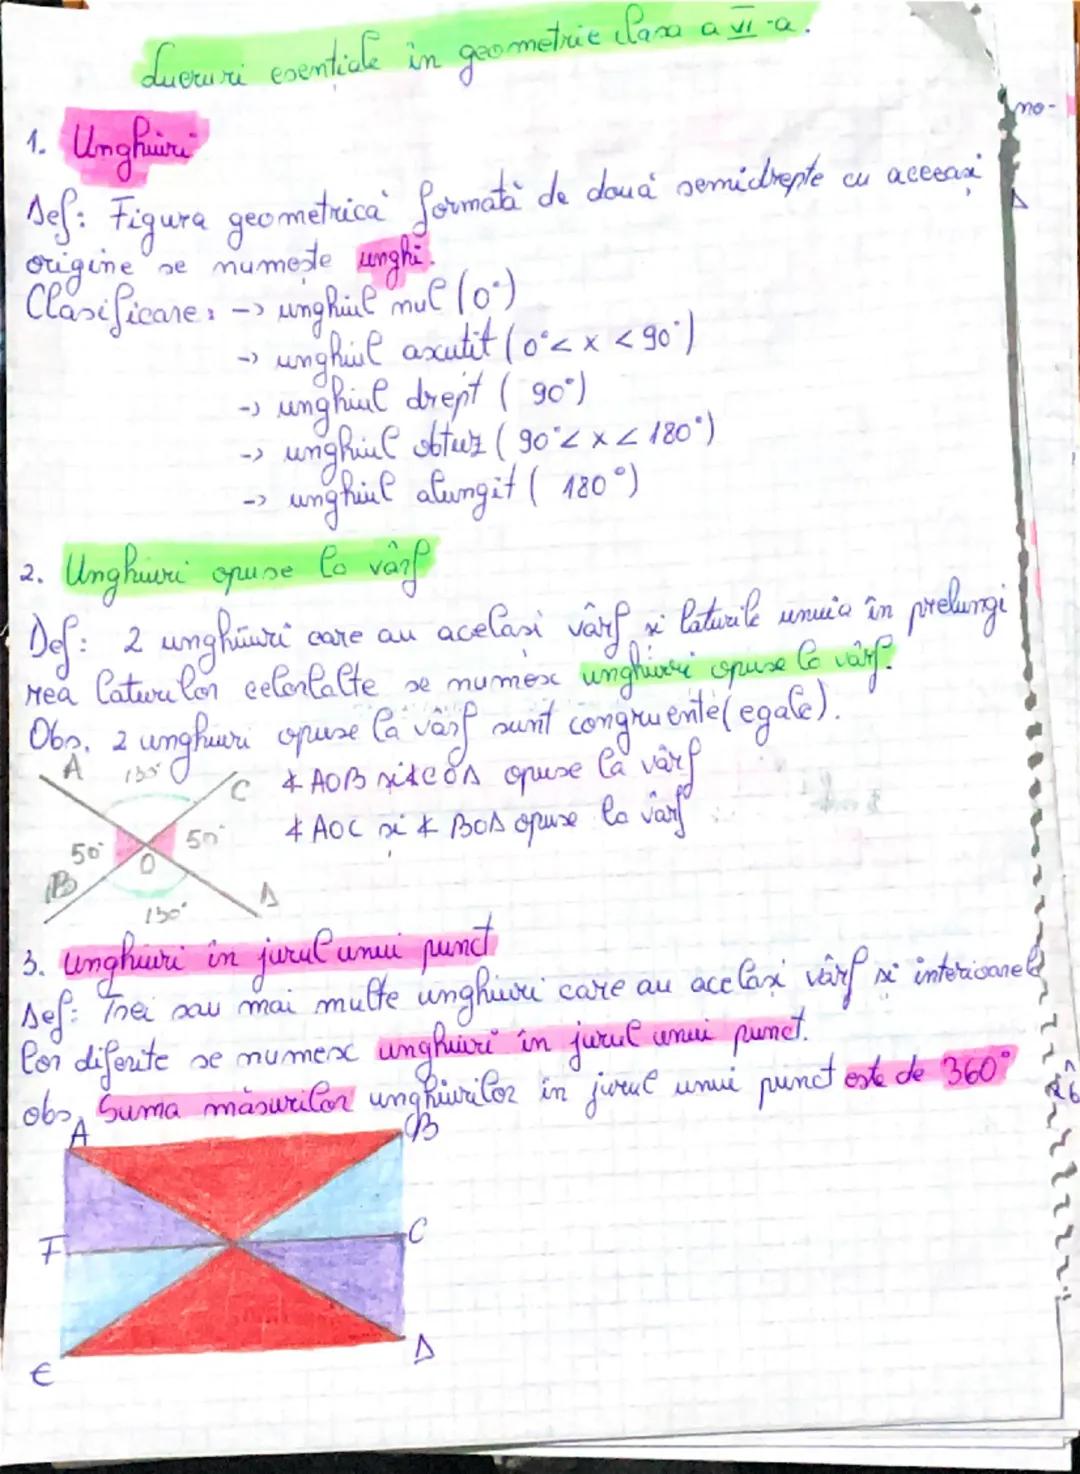 Lucruri esențiale în geometrie clasa a VI-a.
mo-
1. Unghiuri
Def: Figura geometrică formată de două semidrepte cu aceeași
origine se numește unghi.
Clasificare: -> unghiul nul (0°)
-> unghiul ascutit (0°< x < 90°)
-> unghiul drept ( 90°)
-> unghiul obtuz ( 90°< x < 180°)
-> unghiul alungit ( 180°)
2. Unghiuri opuse la vârf
Def: 2 unghiuri care au același vârf și laturile unuia în prelungi
rea laturilor celorlalte se numesc unghiuri opuse la vârf.
Obs. 2 unghiuri opuse la vârf sunt congruente(egale).
A 130° C ∢ AOB și ∢COD opuse la vârf
50° O 50° ∢ AOC și ∢ BOD opuse la vârf
B 130° D
3. Unghiuri în jurul unui punct
Def: Trei sau mai multe unghiuri care au același vârf și interioarele
lor diferite se numesc unghiuri în jurul unui punct.
obs. Suma măsurilor unghiurilor în jurul unui punct este de 360°
A B
F C
E D